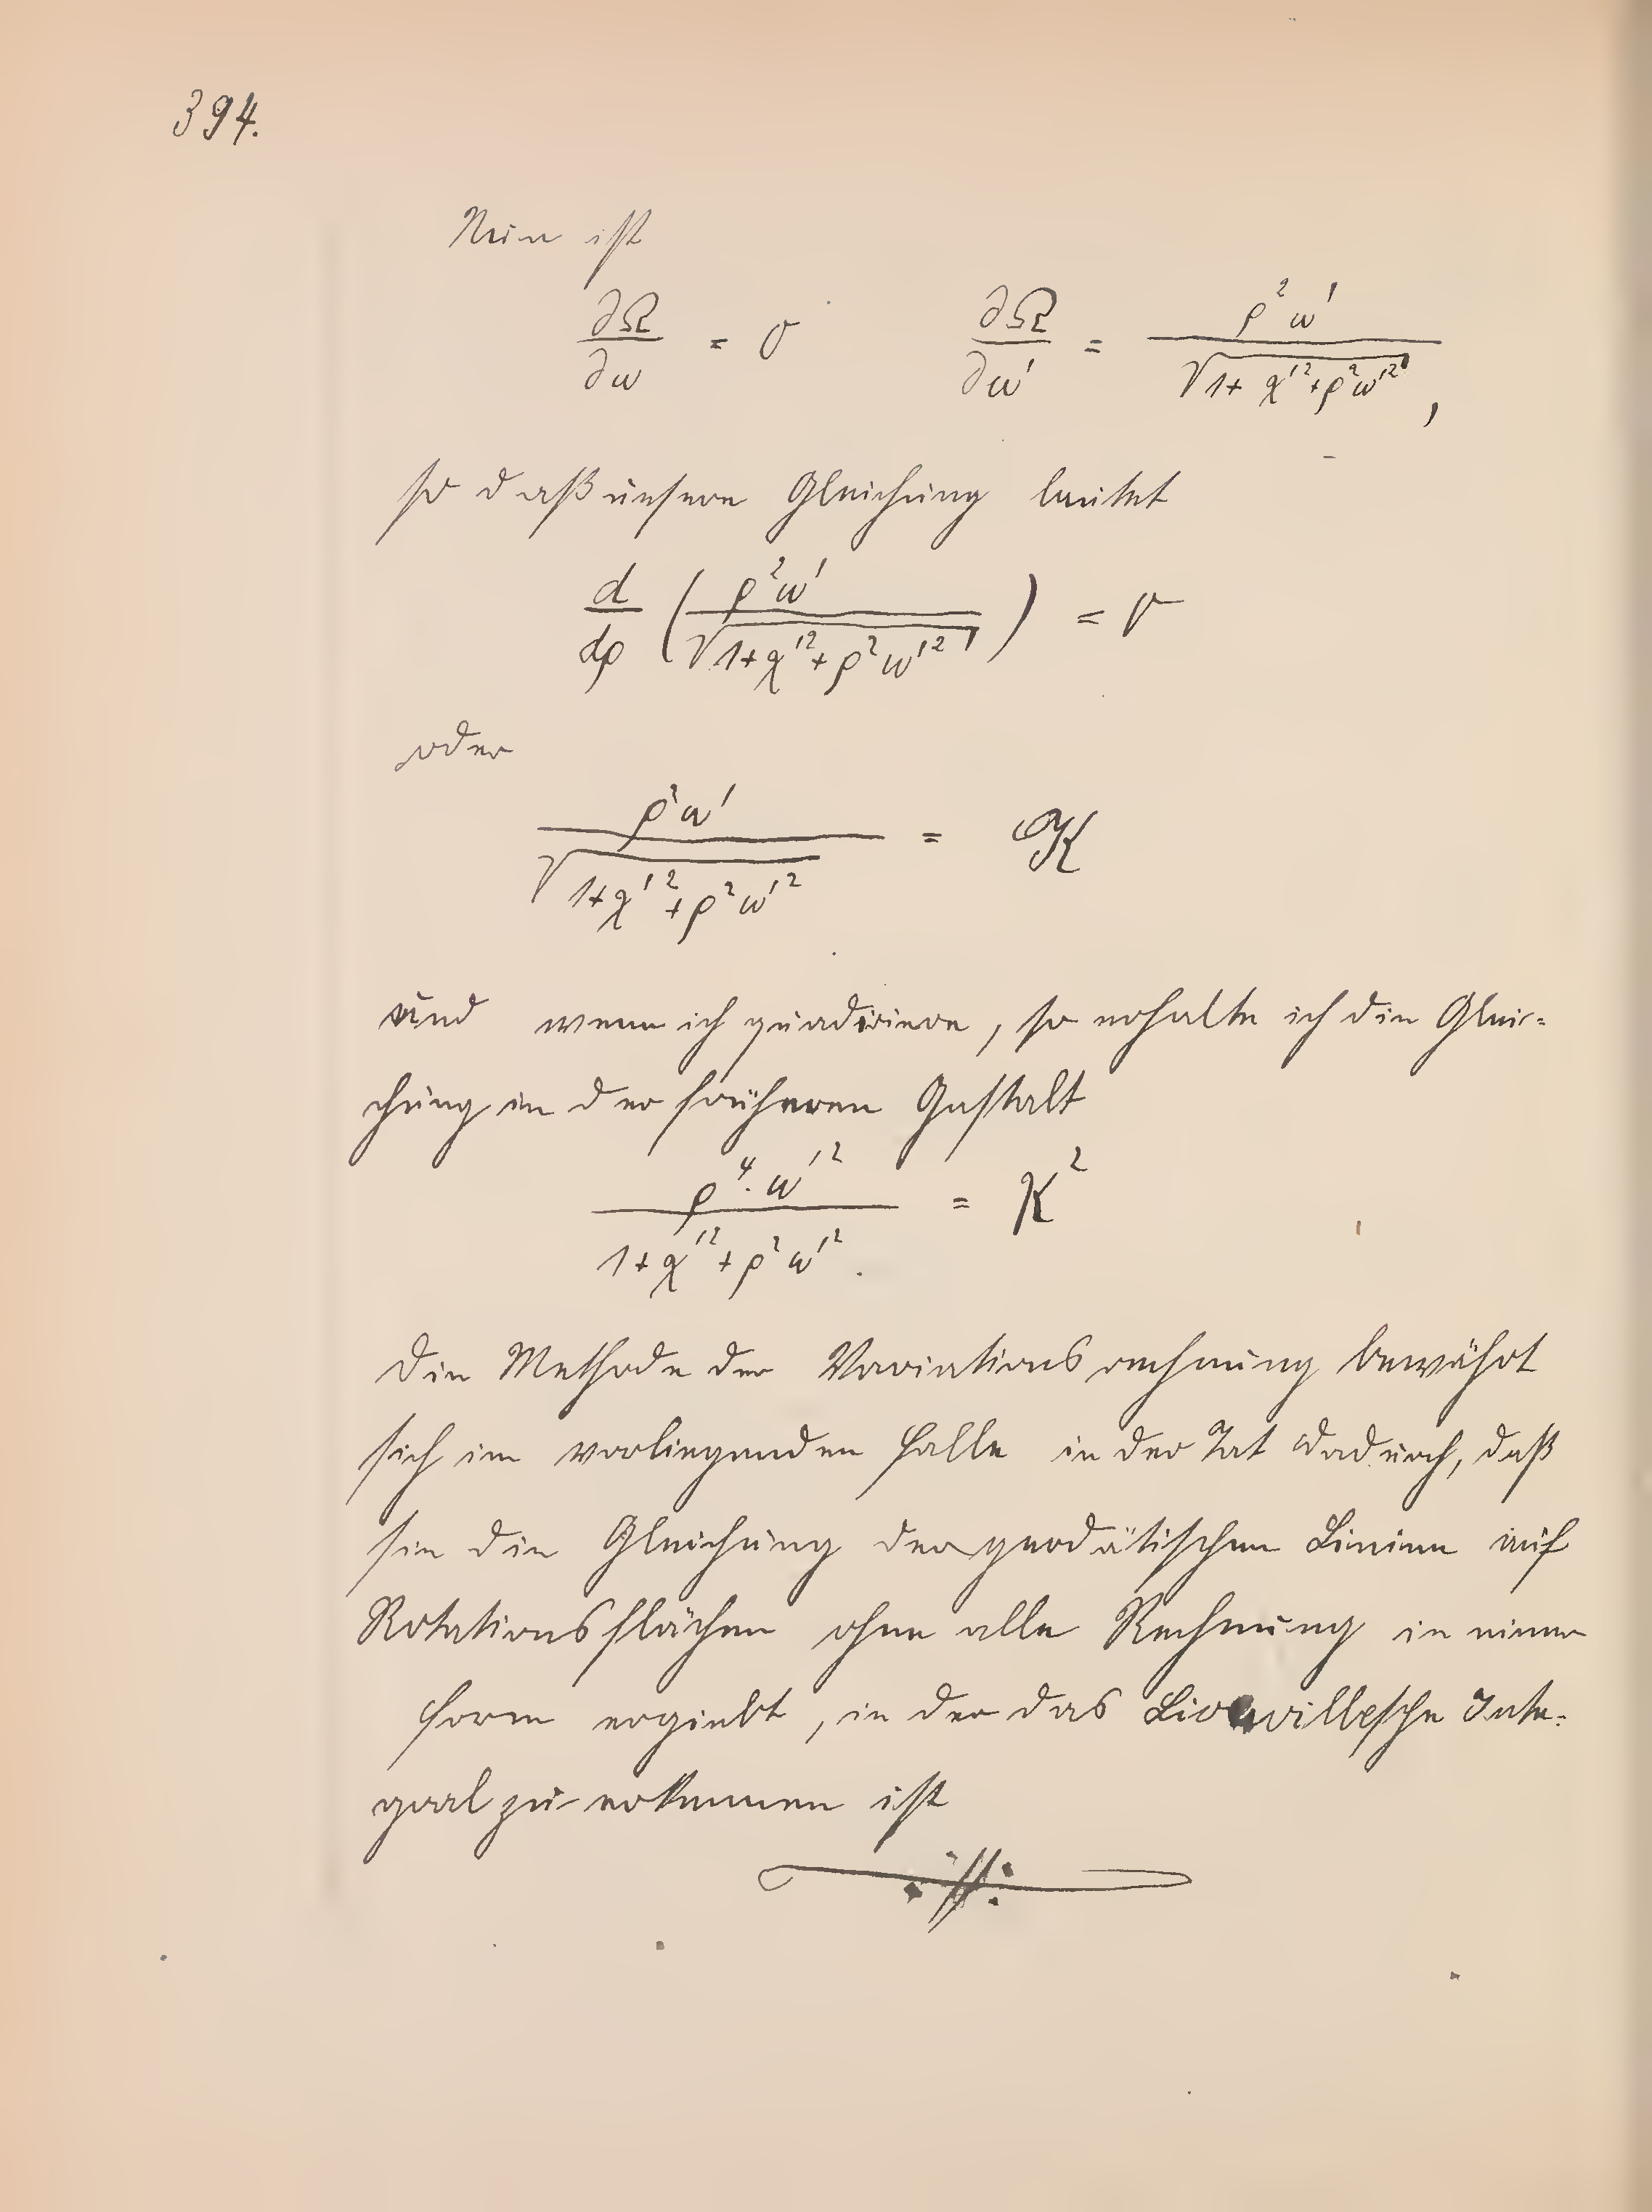 394.
Nun ist
∂Ω/∂ω = 0    ∂Ω/∂ω' = ρ²ω'/√(1+χ'²+ρ²ω'²) ,
so daß unsere Gleichung lautet
d/dρ (ρ²ω'/√(1+χ'²+ρ²ω'²)) = 0
oder
ρ²ω'/√(1+χ'²+ρ²ω'²) = K
und wenn ich quadriere, so erhalte ich die Glei=
chung in der früheren Gestalt
ρ⁴·ω'²/(1+χ'²+ρ²ω'²) = K² .
Die Methode der Variationsrechnung bewährt
sich im vorliegenden Falle in der Tat dadurch, daß
sie die Gleichung der geodätischen Linien auf
Rotationsflächen ohne alle Rechnung in einer
Form ergiebt, in der das Liouvillesche Inte=
gral zu erkennen ist